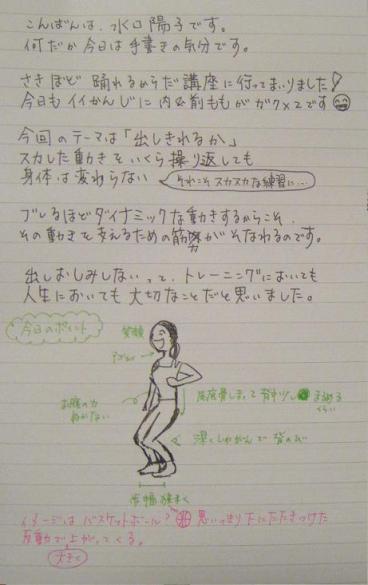 こんばんは、水口陽子です。
何だか今日は手書きの気分です。
さきほど踊れるからだ講座に行ってまいりました！
今日もイイかんじに内もも前ももがガク×2です
今回のテーマは「出しきれるか」
スカした動きをいくら操り返しても
身体は変わらない
それこそスカスカな練習に…
ブレるほどダイナミックな動きするからこそ、
その動きを支えるための筋力がそなわるのです。
出しおしみしないって、トレーニングにおいても
人生においても大切なことだと思いました。
今日のポイント
笑顔
お腹の力
ぬかない
深くしゃがんで
歩幅狭く
イメージはバスケットボール？思いっきり下にたたきつけた
反動で上がってくる。
大きく